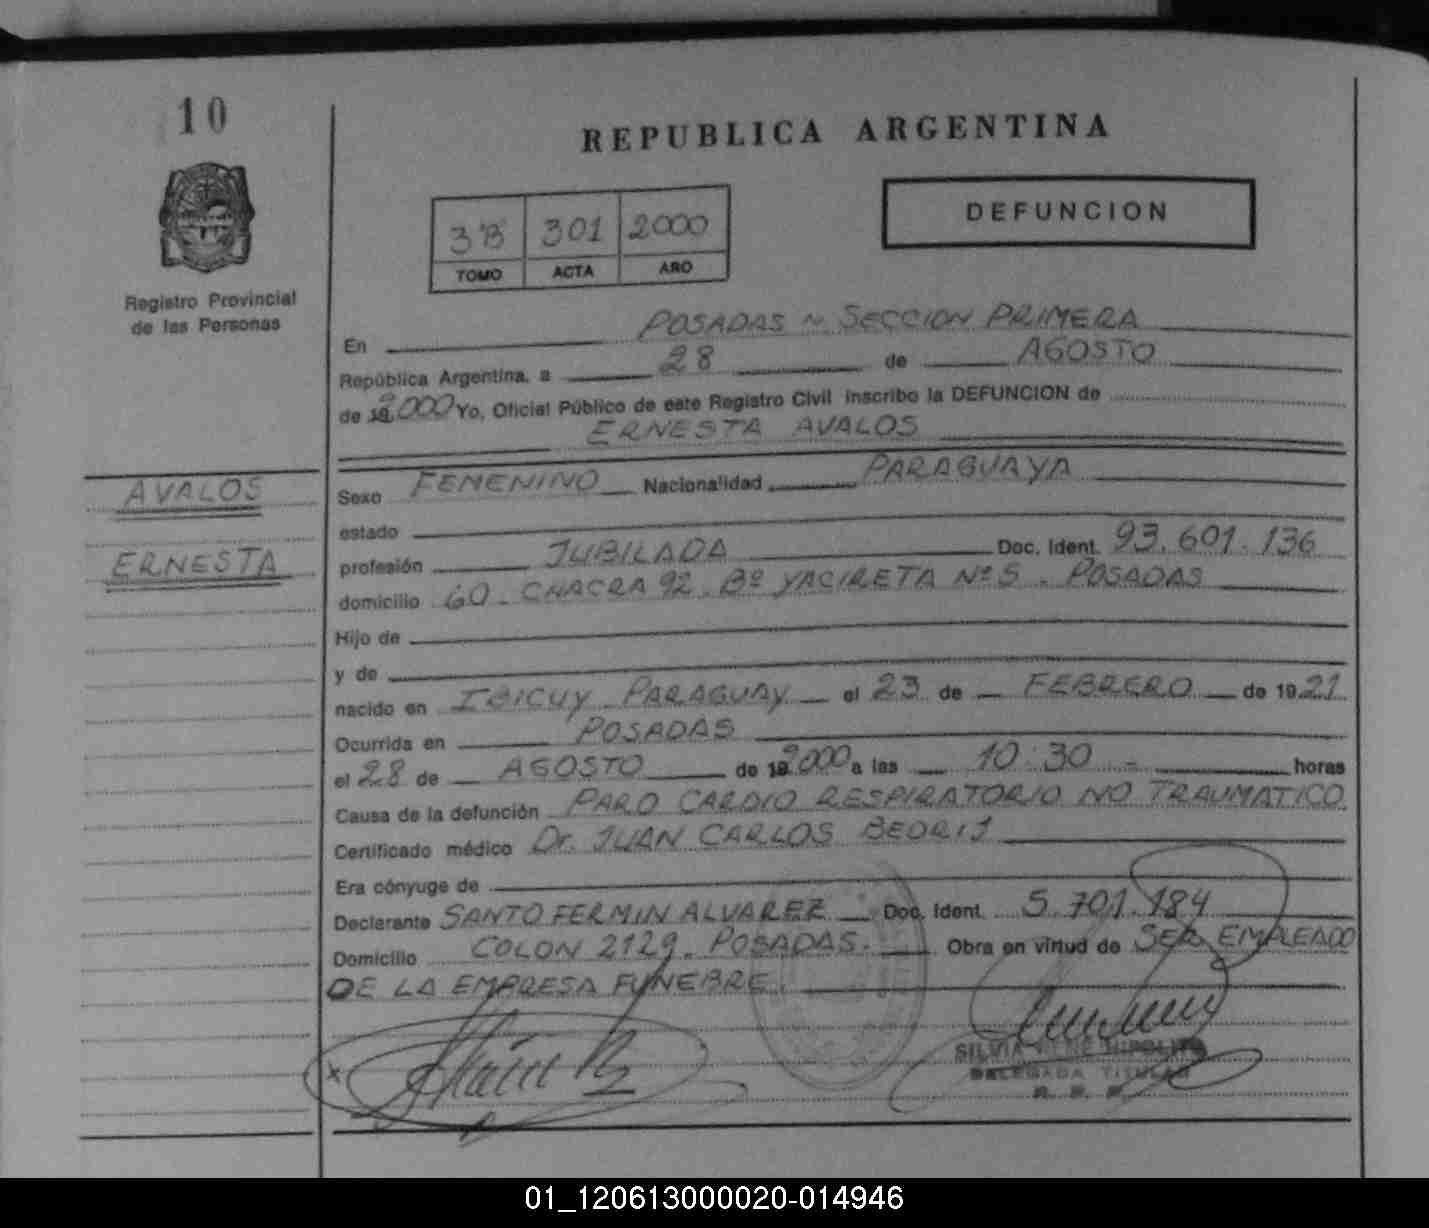 10
REPUBLICA ARGENTINA
DEFUNCION
3B 301 2000
TOMO ACTA AÑO
Registro Provincial
de las Personas
En POSADAS ~ SECCION PRIMERA
República Argentina, a 28 de AGOSTO
de 2.000 Yo, Oficial Público de este Registro Civil inscribo la DEFUNCION de
ERNESTA AVALOS
AVALOS
ERNESTA
Sexo FEMENINO Nacionalidad PARAGUAYA
estado
profesión JUBILADA Doc. Ident. 93.601.136
domicilio 60. CHACRA 92. Bº YACIRETA Nº 5. POSADAS
Hijo de
y de
nacido en IBICUY PARAGUAY el 23 de FEBRERO de 1921
Ocurrida en POSADAS
el 28 de AGOSTO de 2000 a las 10:30 horas
Causa de la defunción PARO CARDIO RESPIRATORIO NO TRAUMATICO
Certificado médico Dr. JUAN CARLOS
Era cónyuge de
Declarante SANTO FERMIN ALVAREZ Doc. Ident. 5.701.184
Domicilio COLON 2129. POSADAS. Obra en virtud de SER EMPLEADO
DE LA EMPRESA FUNEBRE.
X
SILVIA HIPOLITO
DELEGADA TITULAR
01_120613000020-014946